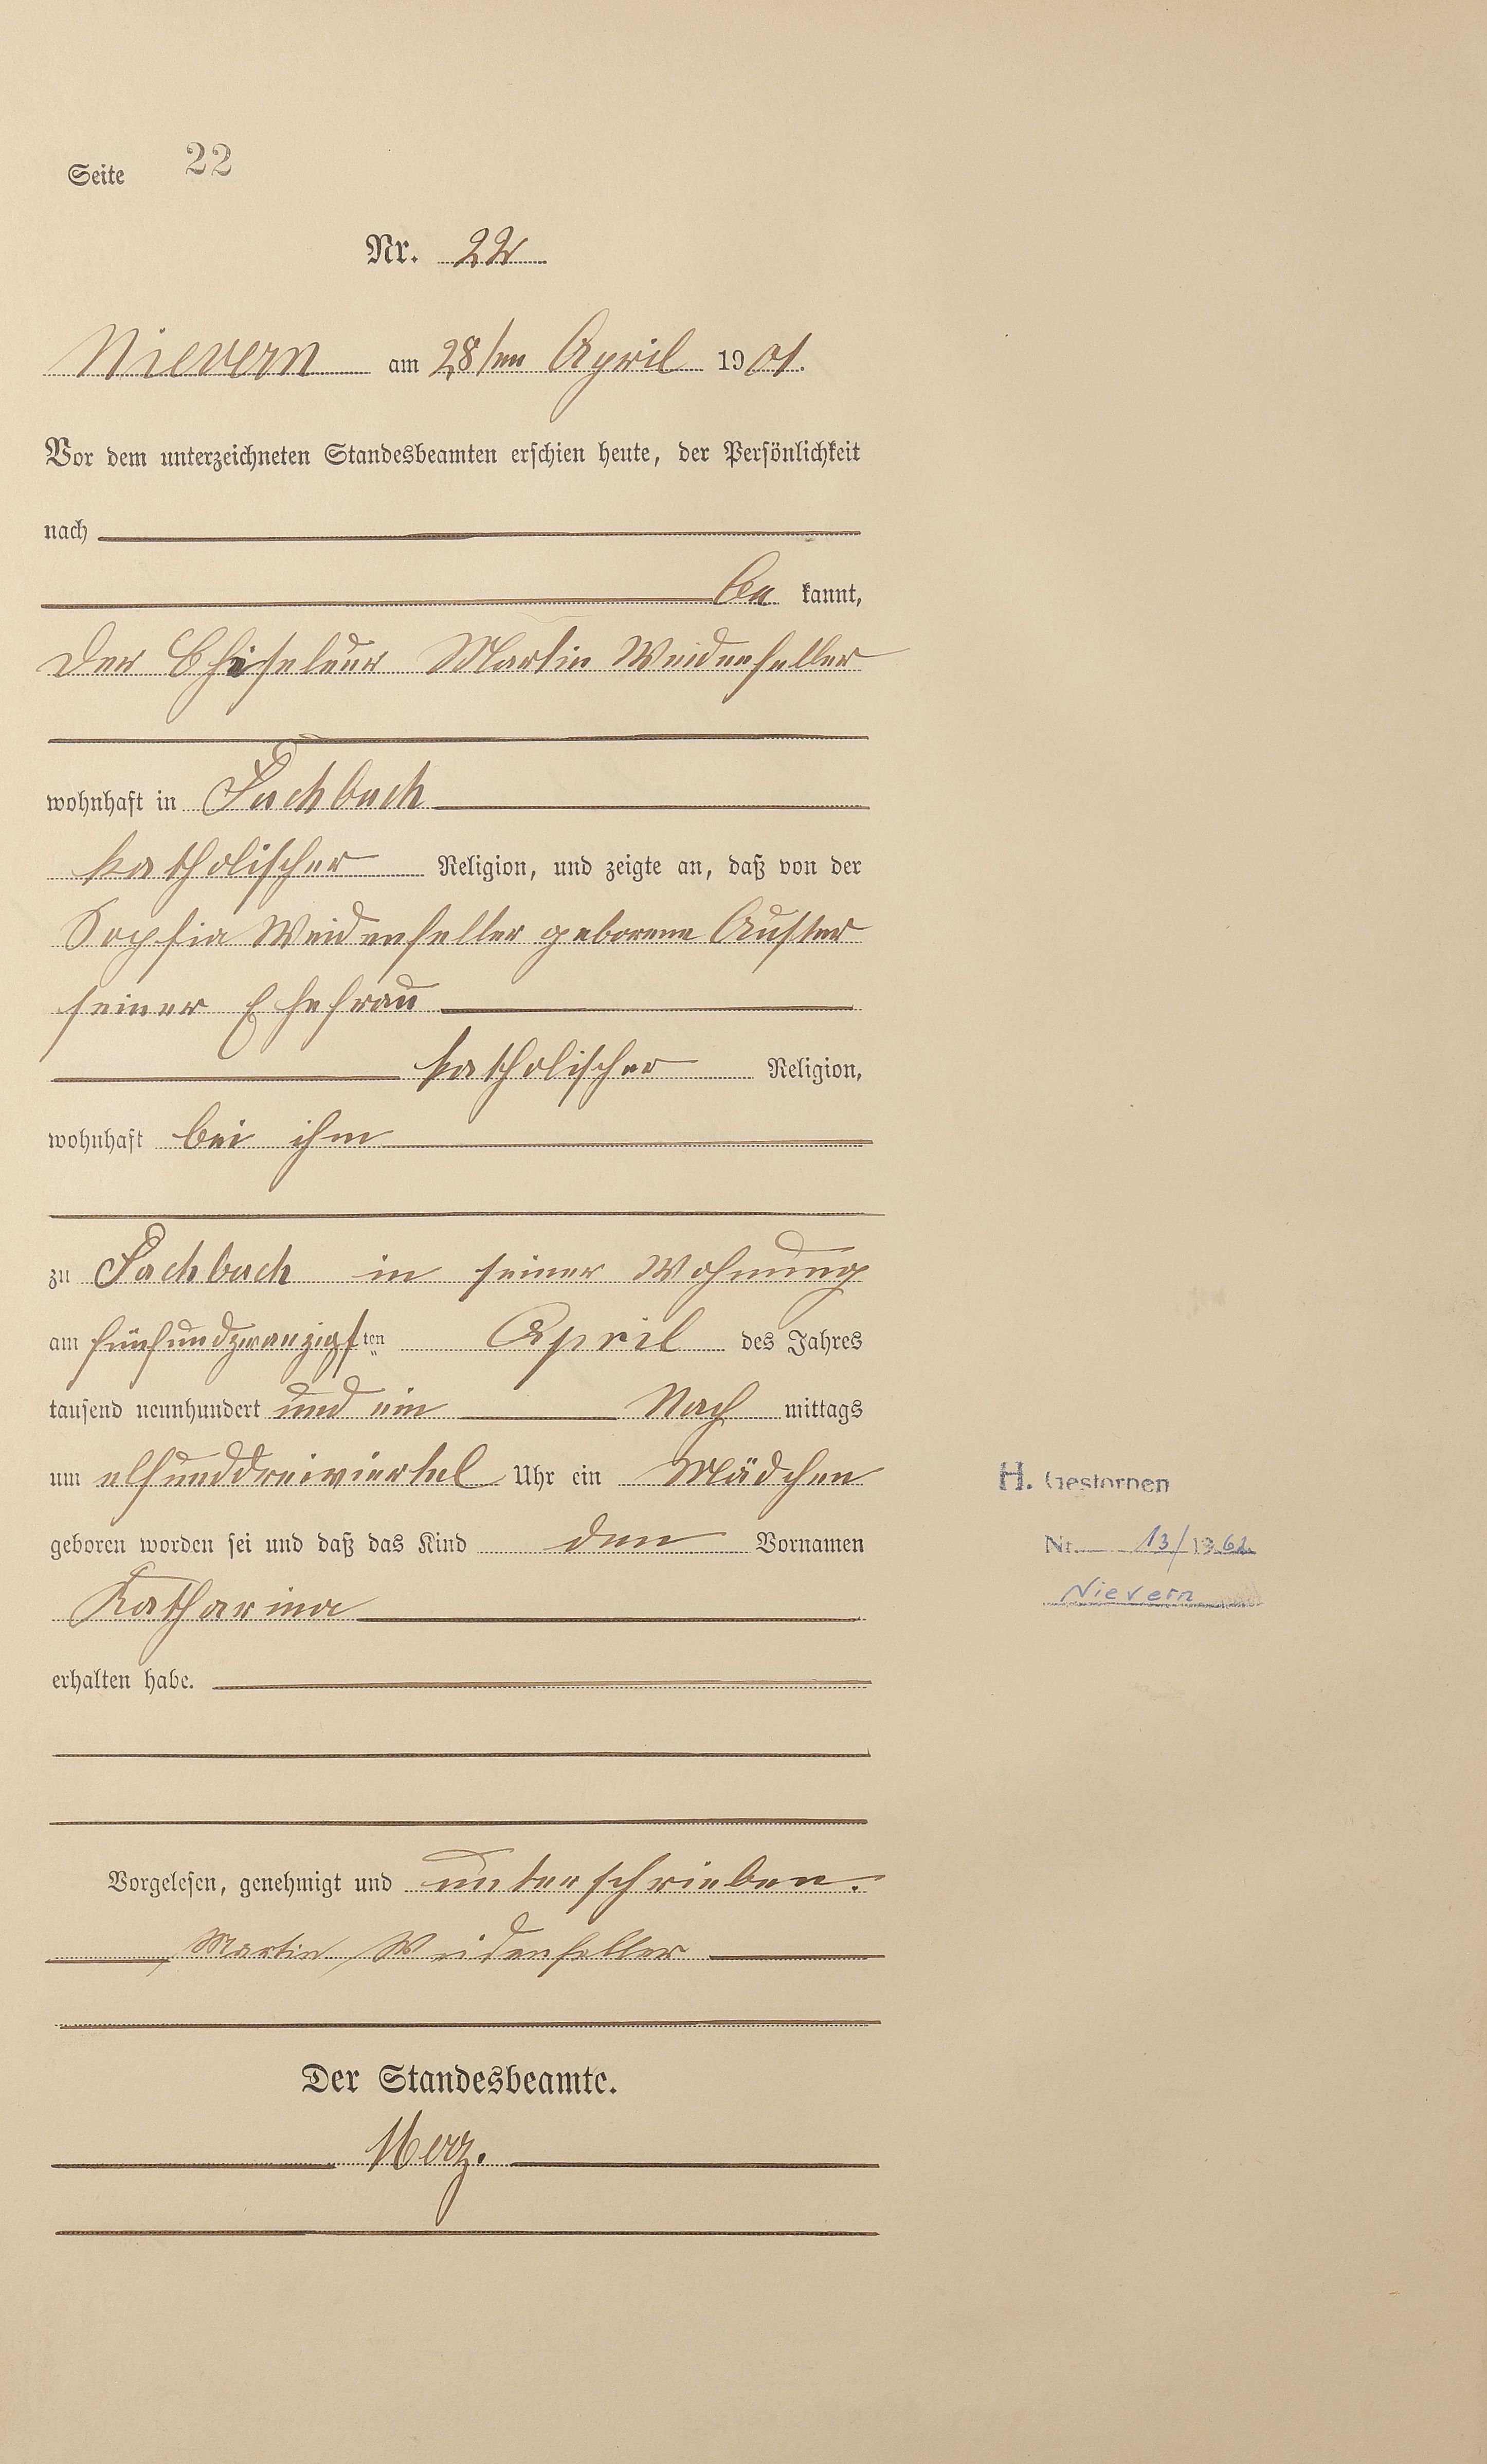 Seite 22
Nr. 22
Nievern am 28ten April 1901.
Vor dem unterzeichneten Standesbeamten erschien heute, der Persönlichkeit
nach
be kannt,
der Chiseleur Martin Weidenfeller
wohnhaft in Fachbach
katholischer Religion, und zeigte an, daß von der
Sophia Weidenfeller geborene Auster
seiner Ehefrau
katholischer Religion,
wohnhaft bei ihm
zu Fachbach in seiner Wohnung
am fünfundzwanzigsten April des Jahres
tausend neunhundert und ein Nach mittags
um elfunddreiviertel Uhr ein Mädchen
geboren worden sei und daß das Kind den Vornamen
Katharina
erhalten habe.
Vorgelesen, genehmigt und unterschrieben.
Martin Weidenfeller
Der Standesbeamte.
Merz.
H. Gestorben
Nr. 13/1962
Nievern